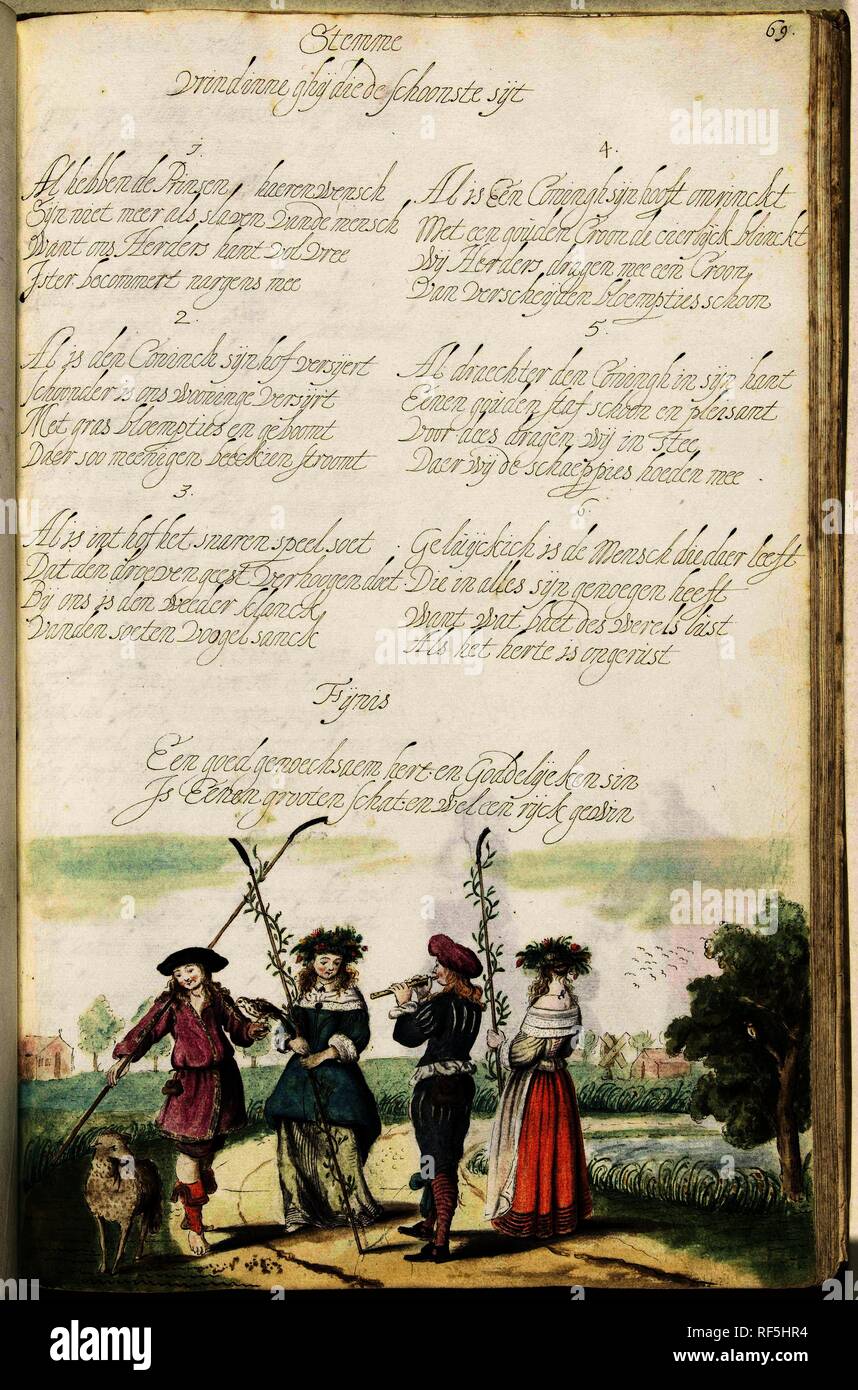 69.
Stemme
Vrindinne ghij die de schoonste sijt
1
Al hebben de Prinsen haeren wensch
Sijn niet meer als slaven vande mensch
Want ons Herders hant vol vree
Ister becommert nargens mee
2.
Al is den Coninck sijn hof versijert
Schoonder is ons wooninge versijrt
Met gras bloempties en geboomt
Daer soo meenigen beeckien stroomt
3.
Al is int hof het snaren speel soet
Dat den droeven geest verhoogen doet
Bij ons is den weeder klanck
Vanden soeten voogel sanck
4.
Al is Een Coningh sijn hooft omrinckt
Met een gouden Croon de cierlijck blinckt
Wij Herders dragen mee een Croon
Van verscheijden bloempties schoon
5.
Al draechter den Coningh in sijn hant
Eenen gouden staf schoon en pleasant
Voor dees dragen wij in stee
Daer wij de schaeppies hoeden mee.
6.
Geluijckich is de Mensch die daer leeft
Die in alles sijn genoegen heeft
Want wat baet des werels lust
Als het herte is ongerust
Fijnis
Een goed genoechsaem hert en Goddelijcken sin
Is Eenen grooten schat en wel een rijck gewin
alamy
alamy stock photo
Image ID: RF5HR4
www.alamy.com